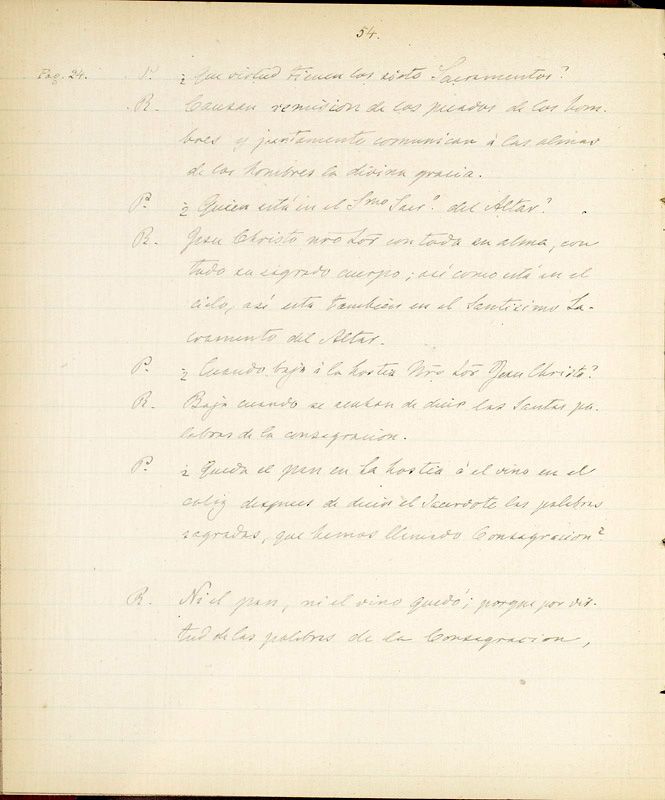 54.
Pag. 24. P. ¿ Que virtud tienen los siete Sacramentos?
R. Causan remision de los pecados de los hom-
bres y juntamente comunican á las almas
de los hombres la divina gracia.
P. ¿ Quien está en el Smo Sacrº. del Altar?
R. Jesu Christo nro Sōr con toda su alma, con
todo su sagrado cuerpo; así como está en el
cielo, así esta también en el Santisimo Sa-
cramento del Altar.
P. ¿ Cuando baja á la hostia Nr̄o Sōr Jesu Christo?
R. Baja cuando se acaban de decir las Santas pa-
labras de la consagracion.
P. ¿ Queda el pan en la hostia ó el vino en el
caliz despues de decir el Sacerdote las palabras
sagradas, que hemos llamado Consagracion?
R. Ni el pan, ni el vino quedó; porque por vir-
tud de las palabras de la Consagracion,